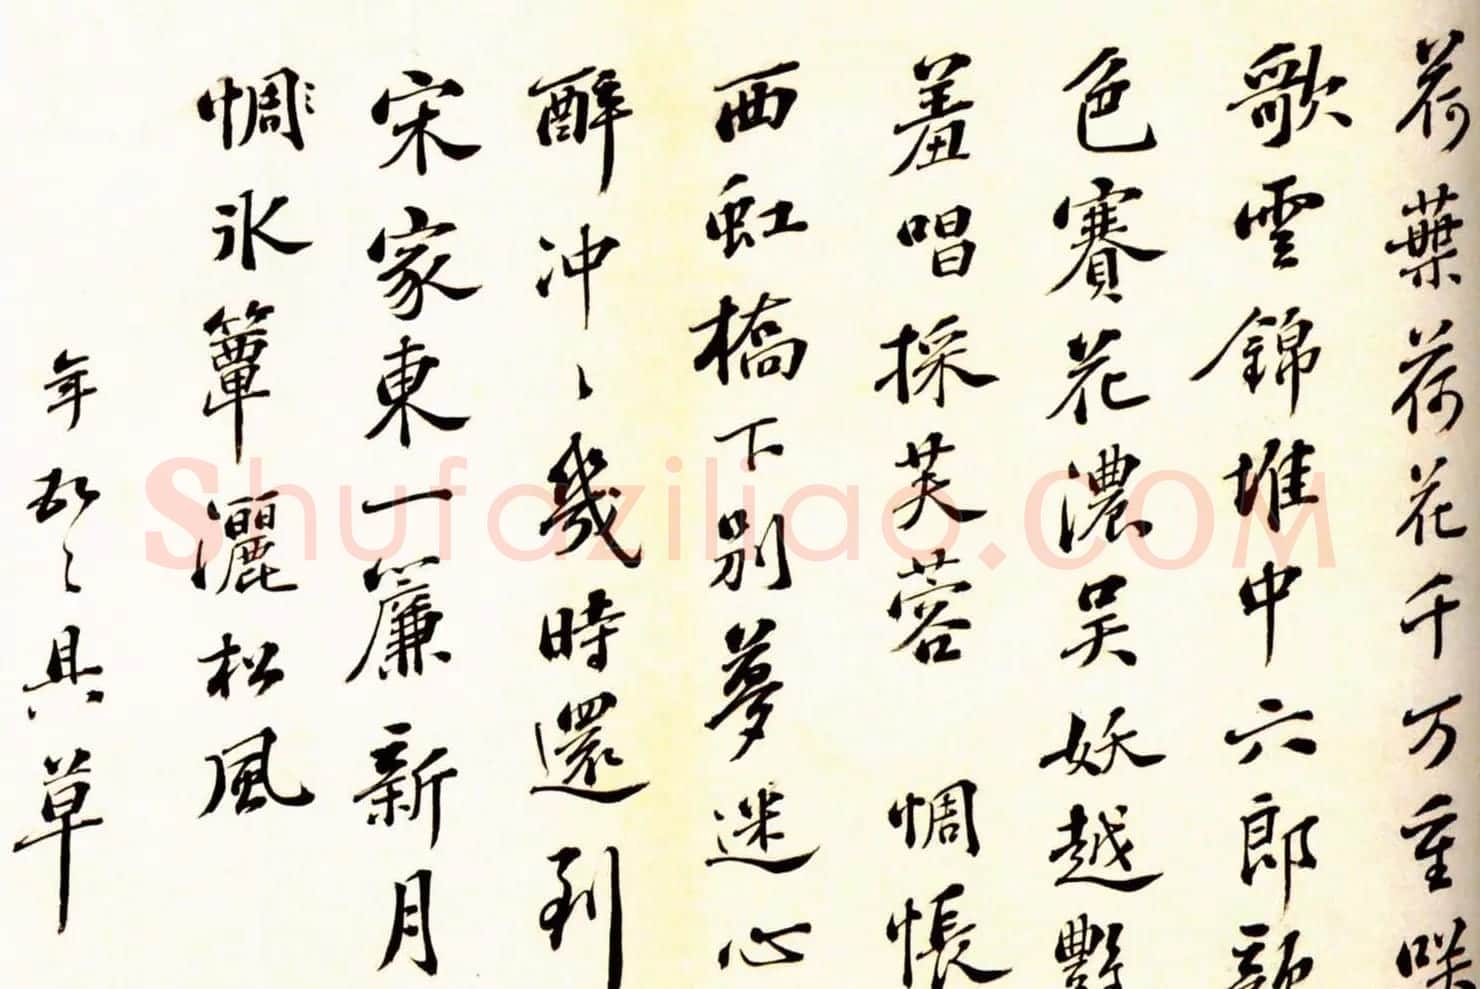 荷葉荷花千万重
歌雲錦堆中六郎
色賽花濃吴妖越艷
羞唱採芙蓉 惆悵
西虹橋下別夢迷心
醉冲〻幾時還到
宋家東一簾新月
惆氷簟灑松風
年 具草
Shufaziliao.COM